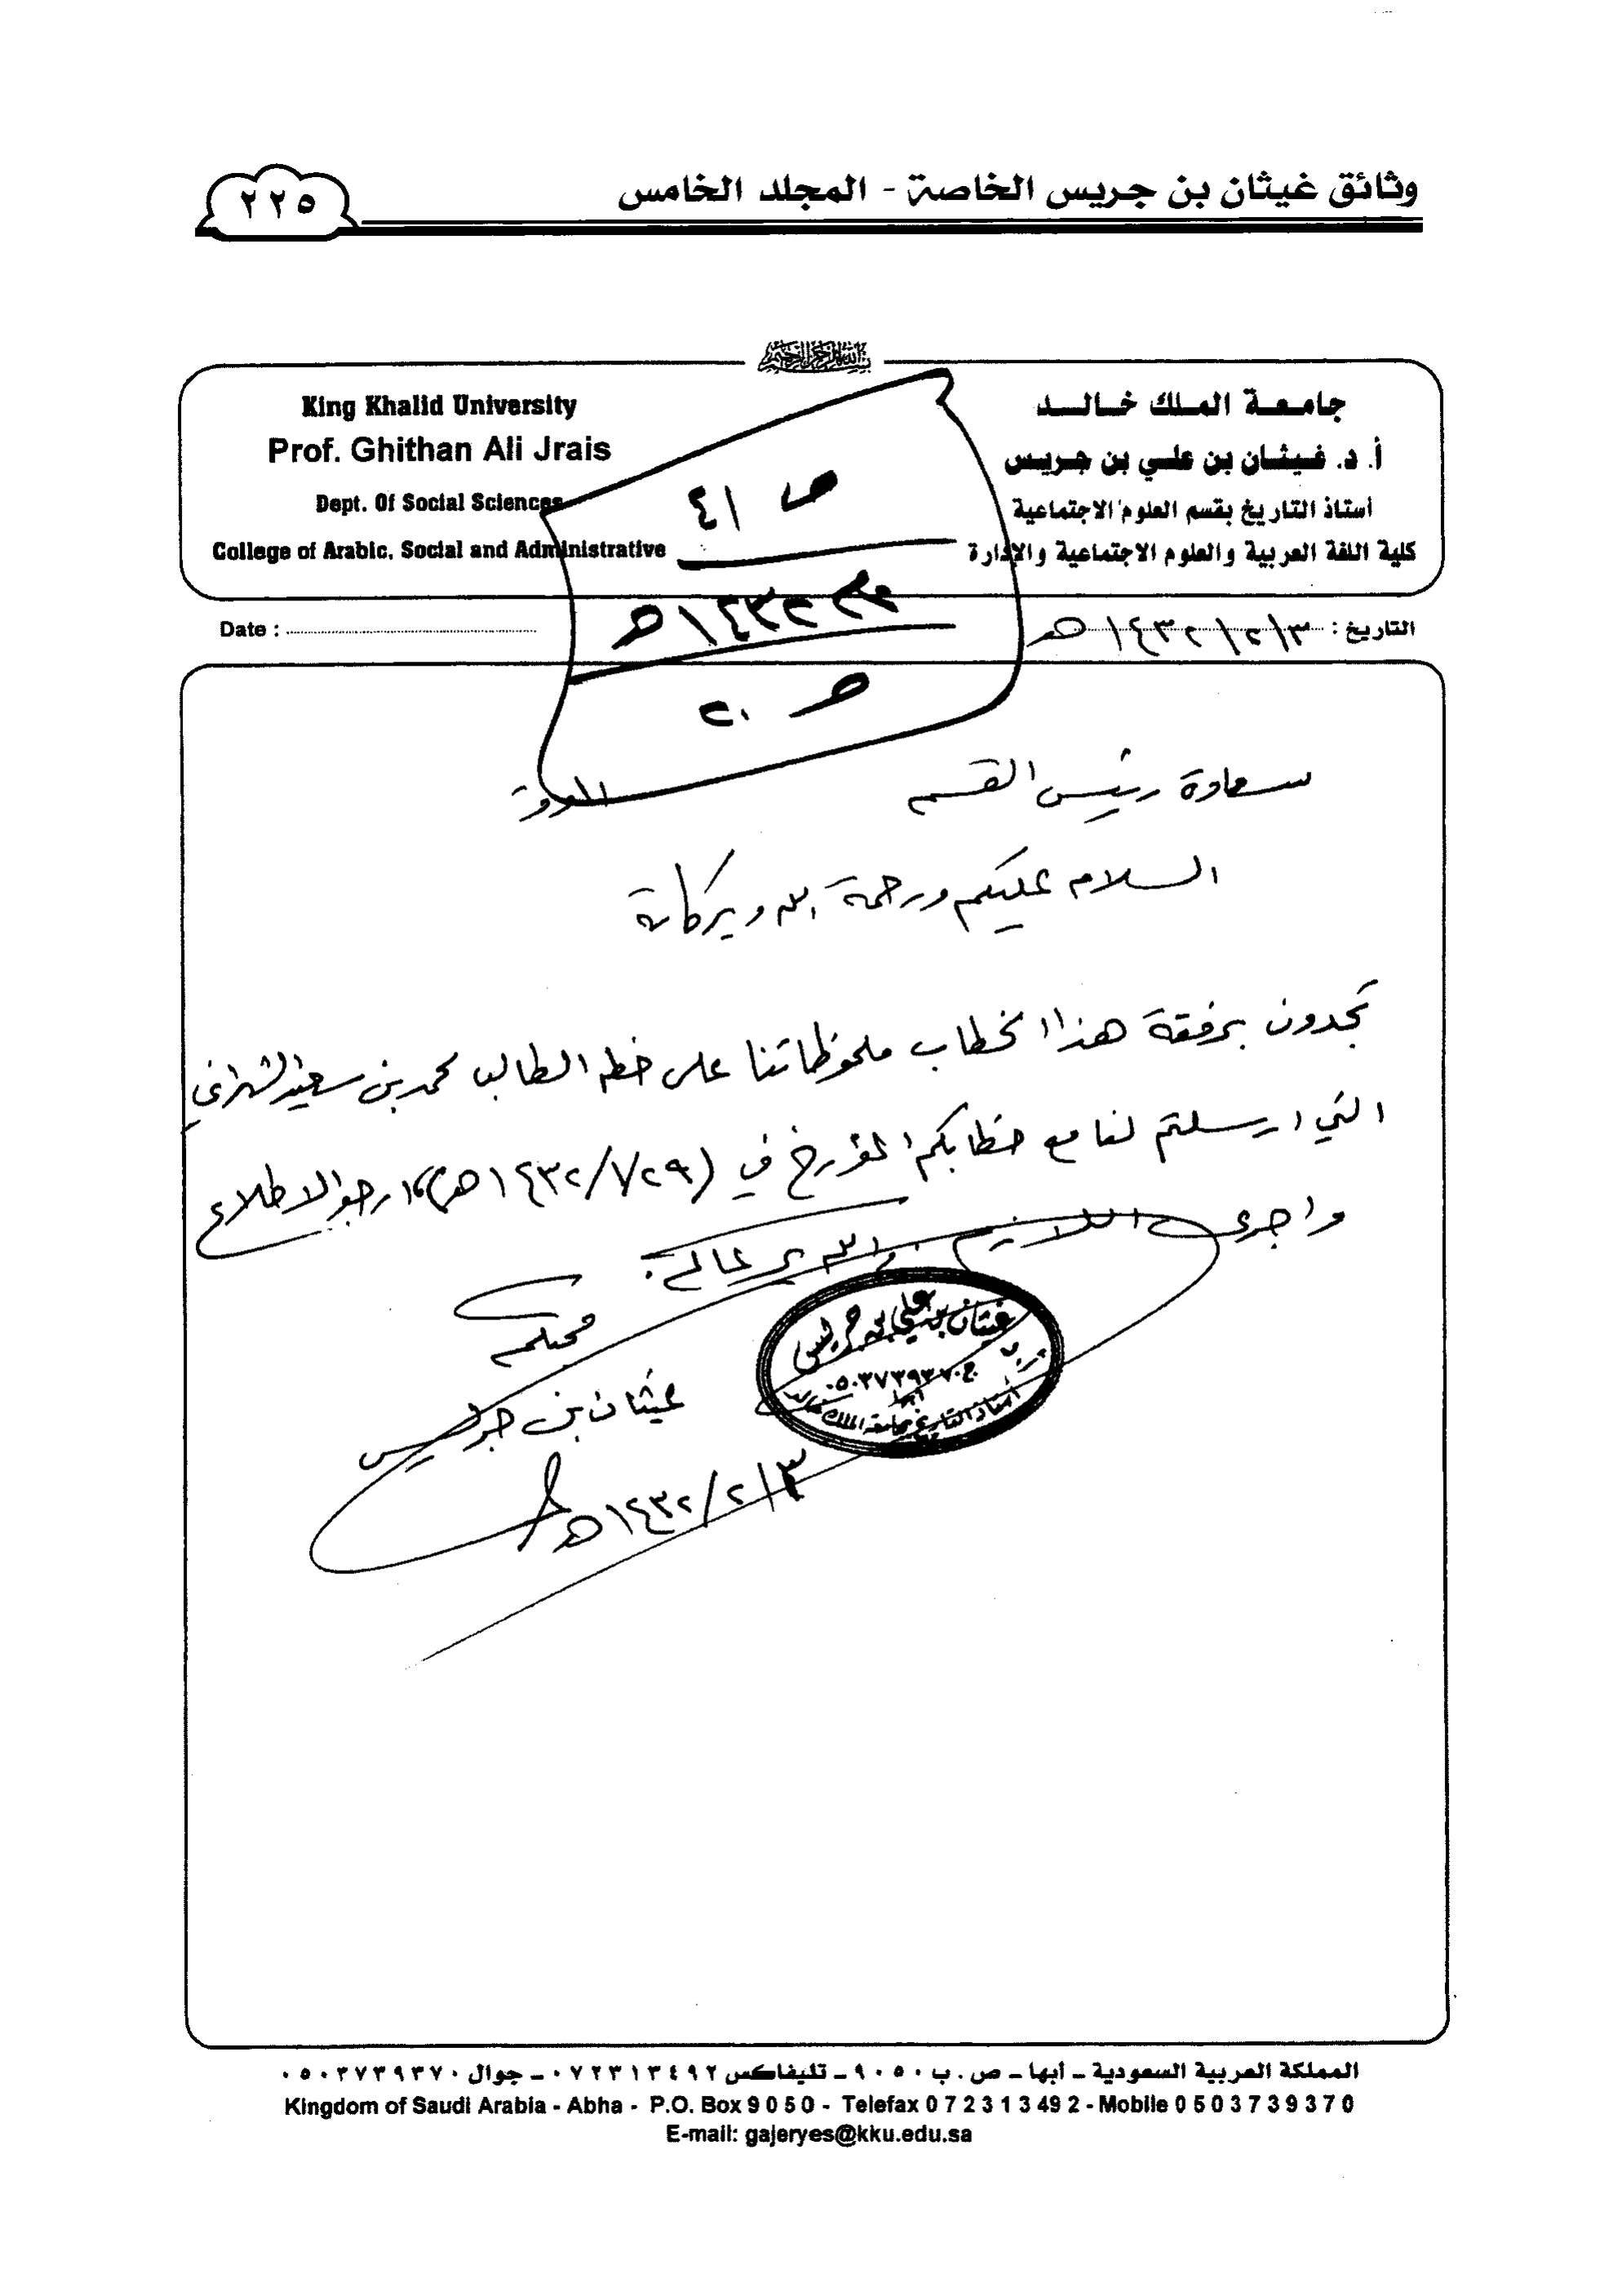 وثائق غيثان بن جريس الخاصة - المجلد الخامس
٢٢٥
جامعة الملك خالد
أ. د. غيثان بن علي بن جريس
أستاذ التاريخ بقسم العلوم الاجتماعية
كلية اللغة العربية والعلوم الاجتماعية والإدارة
King Khalid University
Prof. Ghithan Ali Jrais
Dept. Of Social Sciences
College of Arabic, Social and Administrative
ص ٤١
عام ١٤٣٢هـ
ص ٢٠
التاريخ : ٣/٢/١٤٣٢هـ
Date :
سعادة رئيس القسم الموقر
السلام عليكم ورحمة الله وبركاته
تجدون برفقة هذا الخطاب ملحوظاتنا على خطه الطالب محمد بن سعيد الشهراني
التي ارسلتم لنا مع خطابكم المؤرخ في ( ١٤٣٢/ هـ) ارجو الاطلاع
واجراء اللازم. والله يرعاكم.
محبكم
غيثان بن جريس
٣/٢/١٤٣٢هـ
غيثان بن علي بن جريس
ج ٠٥٠٣٧٣٩٣٧٠
أبها
أستاذ التاريخ بجامعة الملك خالد
المملكة العربية السعودية - أبها - ص . ب ٩٠٥٠ - تليفاكس ٠٧٢٣١٣٤٩٢ - جوال ٠٥٠٣٧٣٩٣٧٠
Kingdom of Saudi Arabia - Abha - P.O. Box 9 0 5 0 - Telefax 0 7 2 3 1 3 49 2 - Mobile 0 5 0 3 7 3 9 3 7 0
E-mail: gajeryes@kku.edu.sa